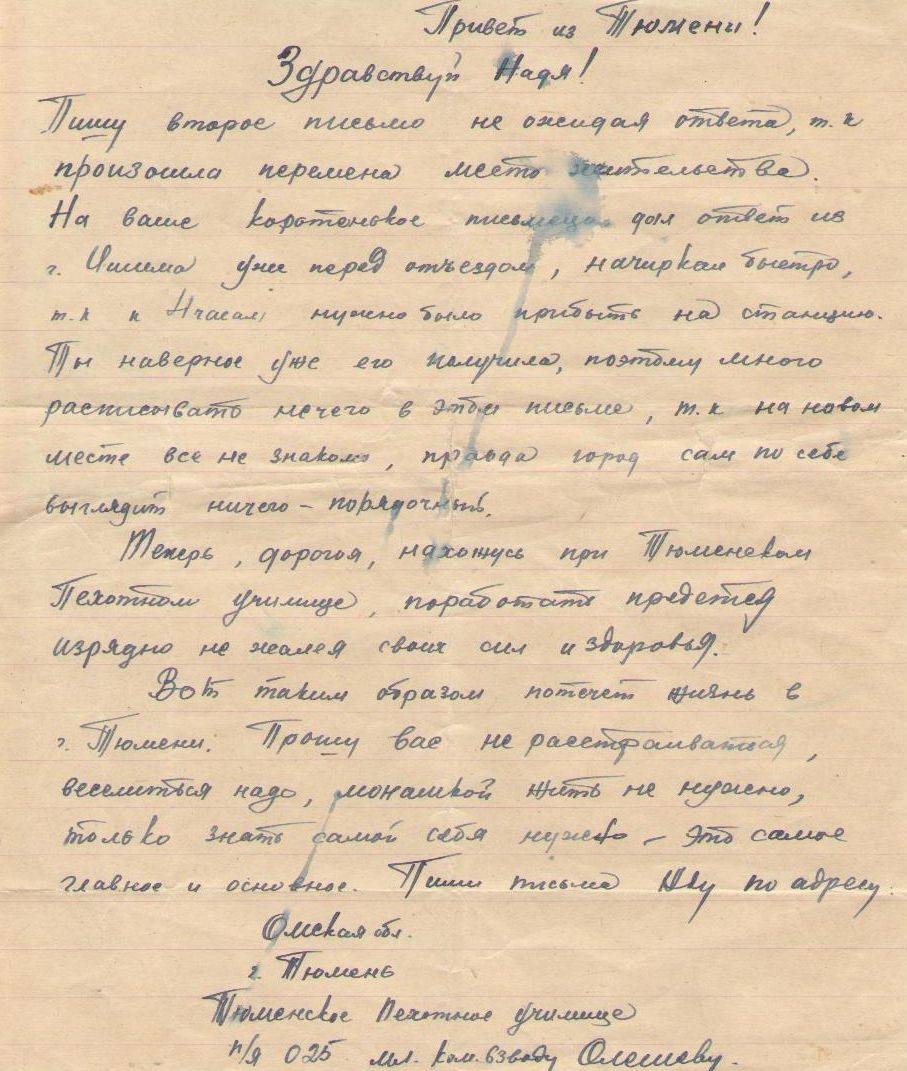 Привет из Тюмени!
Здравствуй Надя!
Пишу второе письмо не ожидая ответа, т.к
произошла перемена место жительства.
На ваше коротенькое письмецо дал ответ из
г. Ишима уже перед отъездом, начиркал быстро,
т.к к 4 часам нужно было прибыть на станцию.
Ты наверное уже его получила, поэтому много
расписывать нечего в этом письме, т.к на новом
месте все не знакомо, правда город сам по себе
выглядит ничего – порядочный.
Теперь, дорогая, нахожусь при Тюменском
Пехотном училище, поработать придется
изрядно не жалея своих сил и здоровья.
Вот таким образом потечет жизнь в
г. Тюмени. Прошу вас не расстраиваться,
веселиться надо, монашкой жить не нужно,
только знать самой себя нужно – это самое
главное и основное. Пиши письма Жду по адресу:
Омская обл.
г. Тюмень
Тюменское Пехотное училище
п/я 025 мл. ком. взводу Олешеву.